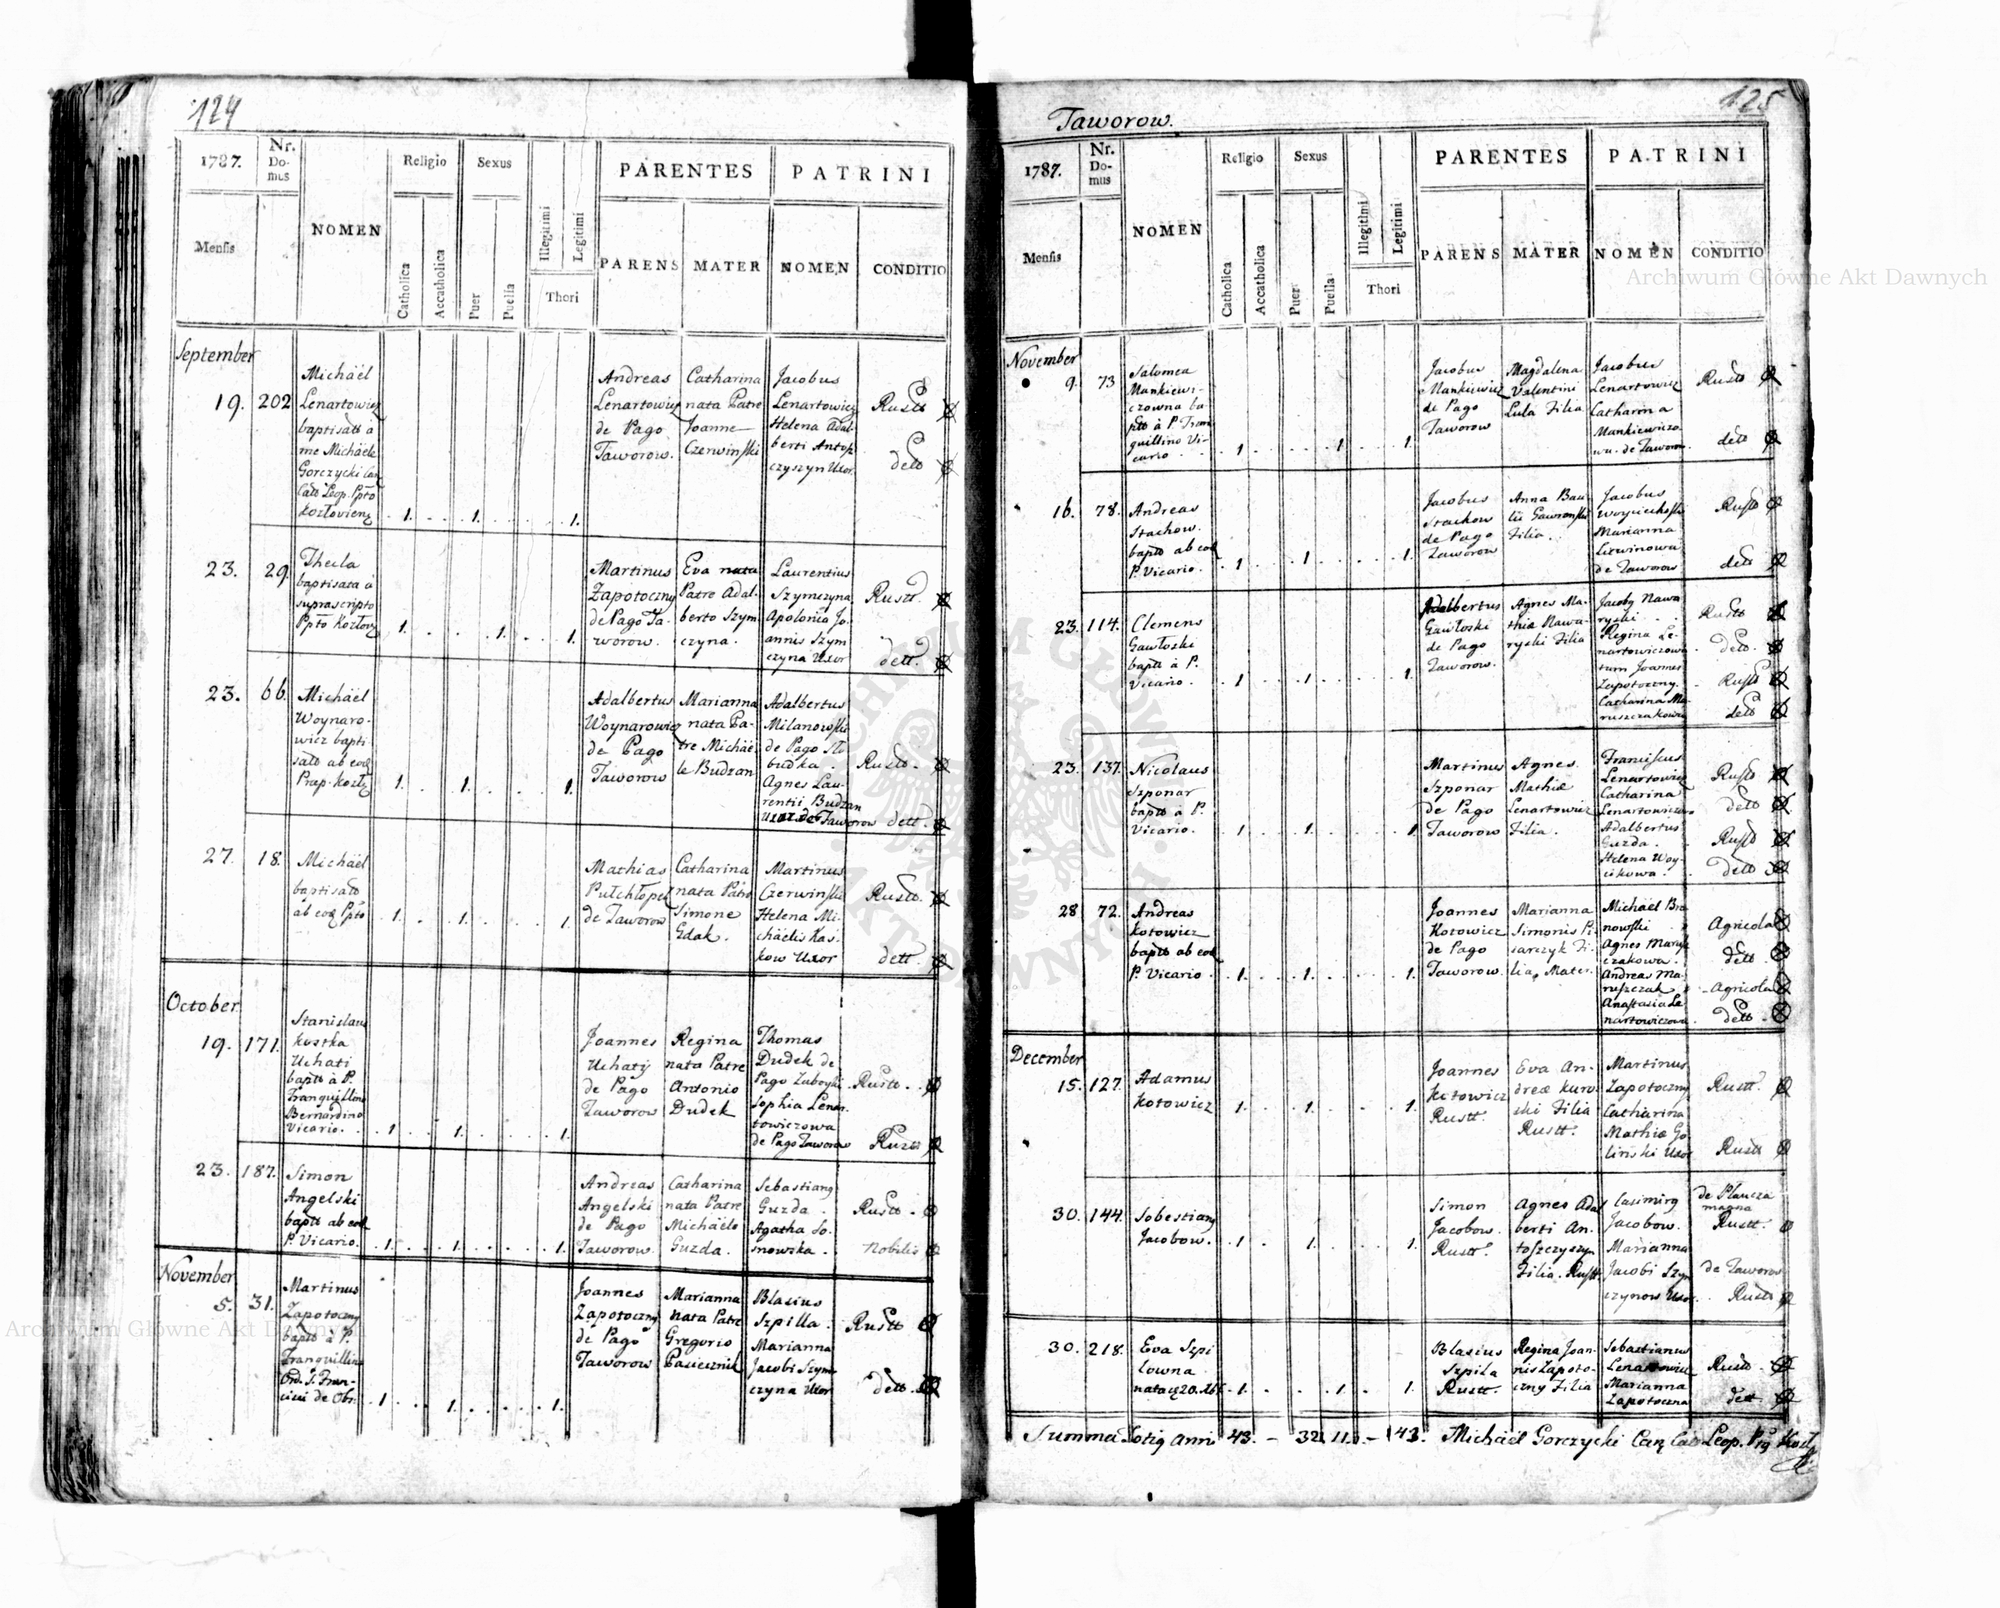 124
1787.
Nr.
Do-
mus
Religio
Sexus
PARENTES
PATRINI
Mensis
NOMEN
Catholica
Accatholica
Puer
Puella
Illegitimi
Legitimi
Thori
PARENS
MATER
NOMEN
CONDITIO
September
19. 202
Michäel
Lenartowicz
baptisatt a
me Michäele
Gorczycki Can
Catt Leop. Ppto
Kozłovienz
1. 1. 1.
Andreas
Lenartowicz
de Pago
Taworow.
Catharina
nata Patre
Joanne
Czerwinski
Jacobus
Lenartowicz
Helena Adal-
berti Antos
czyszyn Uxor.
Rustt
dett
23. 29.
Thecla
baptisata a
suprascripto
Ppto Kozłovz
1. 1. 1.
Martinus
Zapotoczny
de Pago Ta-
worow.
Eva nata
Patre Adal-
berto Szym
czyna.
Laurentius
Szymczyna
Apolonia Jo-
annis Szym
czyna Uxor
Rustt.
dett.
23. 66.
Michäel
Woynaro-
wicz bapti-
satt ab eod
Prap. Kozłz
1. 1. 1.
Adalbertus
Woynarowicz
de Pago
Taworow
Marianna
nata Pa-
tre Michäe-
le Budzan
Adalbertus
Milanowski
de Pago Sło
budka.
Agnes Lau-
rentii Budzan
Uxor de Taworow
Rustt.
dett.
27. 18.
Michäel
baptisatt
ab eod Ppto
1. 1. 1.
Mathias
Pułchłopek
de Taworow
Catharina
nata Patre
Simone
Gdak.
Martinus
Czerwinski
Helena Mi-
chäelis Kas-
kow Uxor
Rustt.
dett.
October.
19. 171.
Stanislaus
Kostka
Uchati
baptt à P.
Tranquillino
Bernardino
Vicario.
1. 1. 1.
Joannes
Uchatÿ
de Pago
Taworow
Regina
nata Patre
Antonio
Dudek
Thomas
Dudek de
Pago Zaboyki
Sophia Lenar-
towiczowa
de Pago Taworow
Rustt.
Rustt
23. 187.
Simon
Angelski
baptt ab eod
P. Vicario.
1. 1. 1.
Andreas
Angelski
de Pago
Taworow.
Catharina
nata Patre
Michäele
Guzda.
Sebastiang
Guzda.
Agatha So-
snowska.
Rustt.
Nobilis
November
5. 31.
Martinus
Zapotoczny
baptt à P.
Tranquillino
Ord. S. Fran-
cisci de Obs.
1. 1. 1.
Joannes
Zapotoczny
de Pago
Taworow
Marianna
nata Patre
Gregorio
Pasiecznik
Blasius
Szpilla.
Marianna
Jacobi Szym-
czyna Uxor
Rustt
dett.
125
Taworow.
1787.
Nr.
Do-
mus
Religio
Sexus
PARENTES
PATRINI
Mensis
NOMEN
Catholica
Accatholica
Puer
Puella
Illegitimi
Legitimi
Thori
PARENS
MATER
NOMEN
CONDITIO
November
9. 73
Salomea
Mankiewi-
czowna ba
ptt à P. Tran
quillino Vi-
cario
1. 1. 1.
Jacobus
Mankiewicz
de Pago
Taworow
Magdalena
Valentini
Lula Filia
Jacobus
Lenartowicz
Catharina
Mankiewiczo
wa. de Taworow.
Rustt
dett
16. 78.
Andreas
Stachow.
baptt ab eod
P. Vicario.
1. 1. 1.
Jacobus
Stachow
de Pago
Taworow
Anna Bau-
lii Gawronski
Filia.
Jacobus
Woyciechoski
Marianna
Lizwinowa
de Taworow
Rustt
dett
23. 114.
Clemens
Gawłoski
baptt à P.
Vicario.
1. 1. 1.
Adalbertus
Gawłoski
de Pago
Taworow.
Agnes Ma-
thiæ Nawa-
ryski Filia
Jacobg Nawa
ryski
Regina Le-
nartowiczowa
tum Joannes
Zapotoczny.
Catharina Ma-
ruszczakowa
Rustt
dett.
Rustt
dett
23. 137.
Nicolaus
Szponar
baptt à P.
Vicario.
1. 1. 1.
Martinus
Szponar
de Pago
Taworow
Agnes
Mathiæ
Lenartowicz
Filia.
Franciscus
Lenartowicz
Catharina
Lenartowiczowa
Adalbertus
Guzda.
Helena Woy-
cikowa.
Rustt
dett
Rustt
dett
28 72.
Andreas
Kotowicz
baptt ab eod
P. Vicario.
1. 1. 1.
Joannes
Kotowicz
de Pago
Taworow.
Marianna
Simonis Pi-
sarczyk Fi-
lia, Mater.
Michäel Bro
nowski
Agnes Marusz
czakowa.
Andreas Ma-
ruszczak
Anastasia Le-
nartowiczowa.
Agricola
dett.
Agricola
dett.
December
15. 127.
Adamus
Kotowicz
1. 1. 1.
Joannes
Kotowicz
Rustt.
Eva An-
dreæ Kurow
ski Filia
Rustt.
Martinus
Zapotoczny
Catharina
Mathiæ Go-
linski Uxor
Rustt.
Rustt
30. 144.
Sebestiang
Jacobow.
1. 1. 1.
Simon
Jacobow.
Rustt.
Agnes Adal
berti An-
toszczyszyn
Filia. Rustt.
Casimirg
Jacobow.
Marianna
Jacobi Szym
czynow Uxor.
de Płaucza
magna
Rustt.
de Taworow
Rustt
30. 218.
Eva Szpi
lowna
1. 1. 1.
Blasius
Szpila
Rustt.
Regina Joan-
nis Zapoto-
czny Filia
Sebastianus
Lenartowicz
Marianna
Zapotoczna
Rustt.
dett.
Summa Totig Anni 43. - 32. 11. - 43. Michäel Gorczycki Can Catt Leop. Prg Kozł
Archiwum Główne Akt Dawnych
Archiwum Główne Akt Dawnych
ARCHIWUM GŁÓWNE AKT DAWNYCH